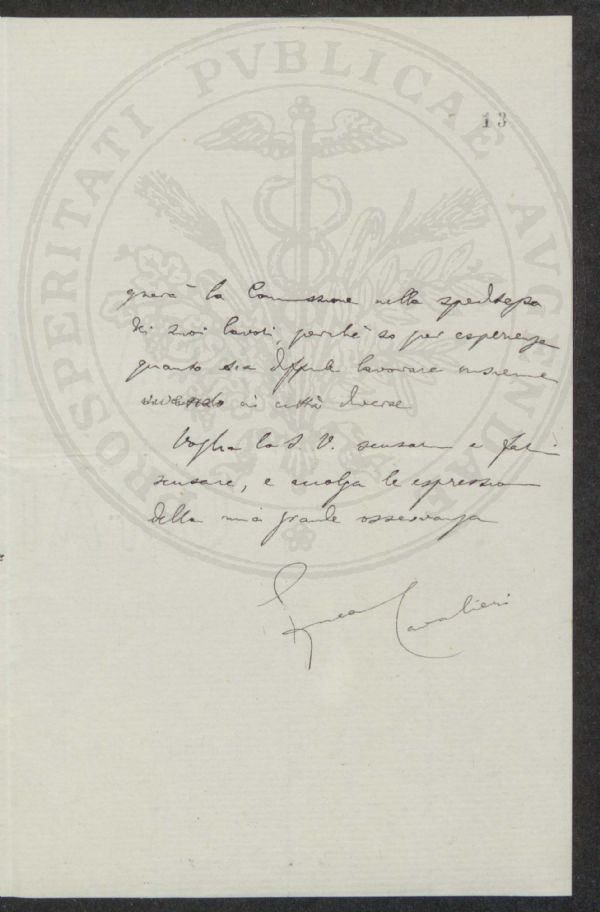 PROSPERITATI PVBLICAE AVGENDAE
13
gnerà la Commissione nella speditezza
dei suoi lavori, perchè so per esperienza
quanto sia difficile lavorare insieme
vivendo in città diverse
Voglia la S. V. scusarmi e farmi
scusare, e accolga le espressioni
della mia grande osservanza
Enea Cavalieri